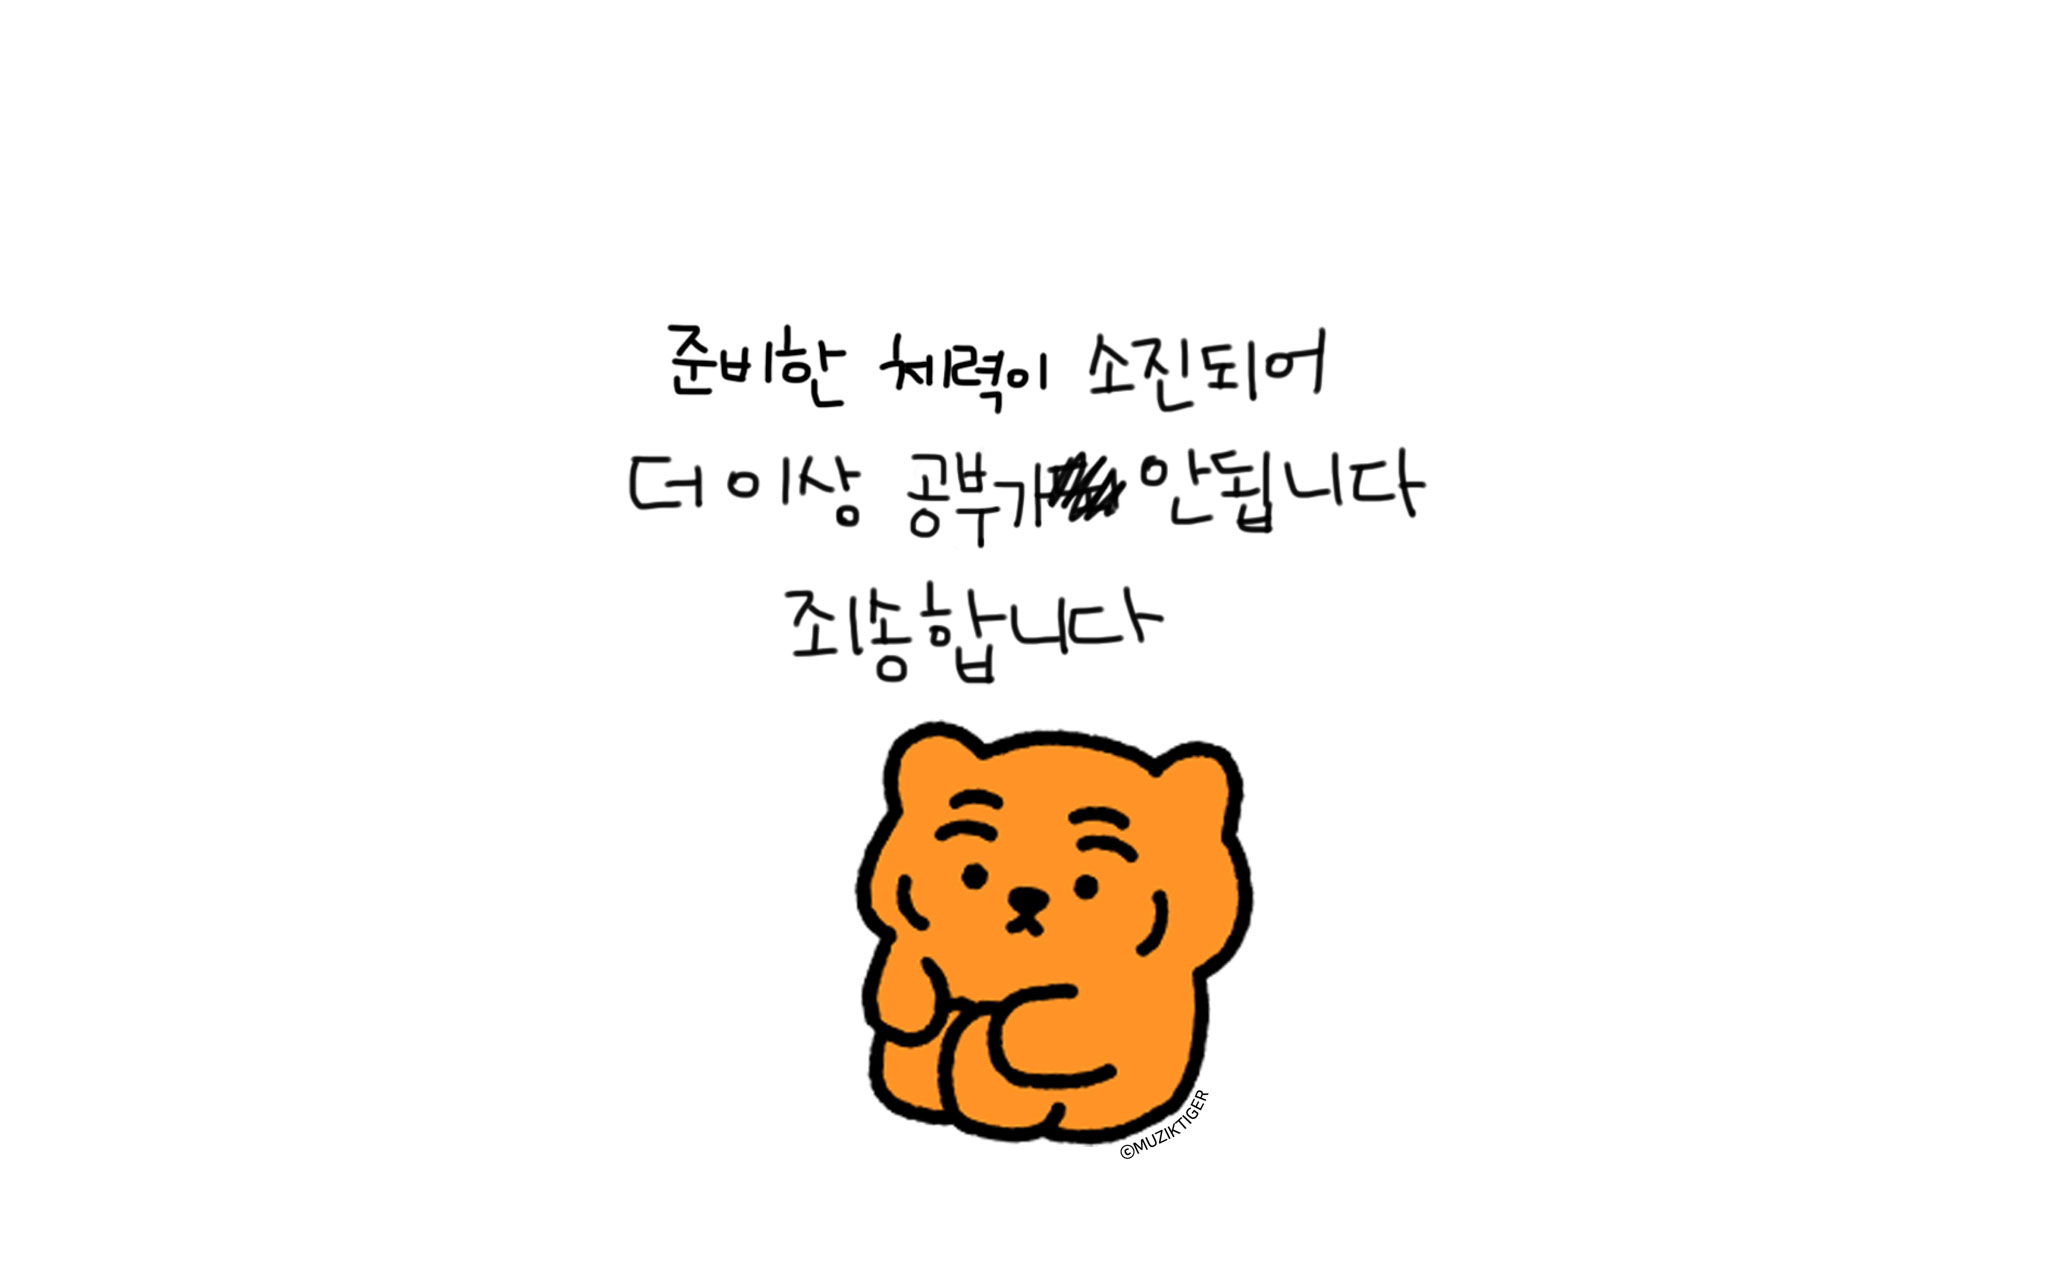 준비한 체력이 소진되어
더 이상 공부가 안됩니다
죄송합니다
©MUZIKTIGER